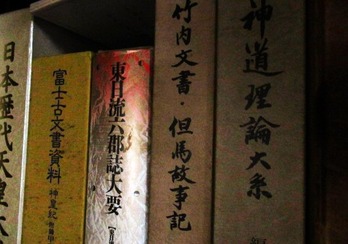 神道理論大系
竹内文書・但馬故事記
東日流六郡誌大要
富士古文書資料
神皇記
日本歴代天皇大